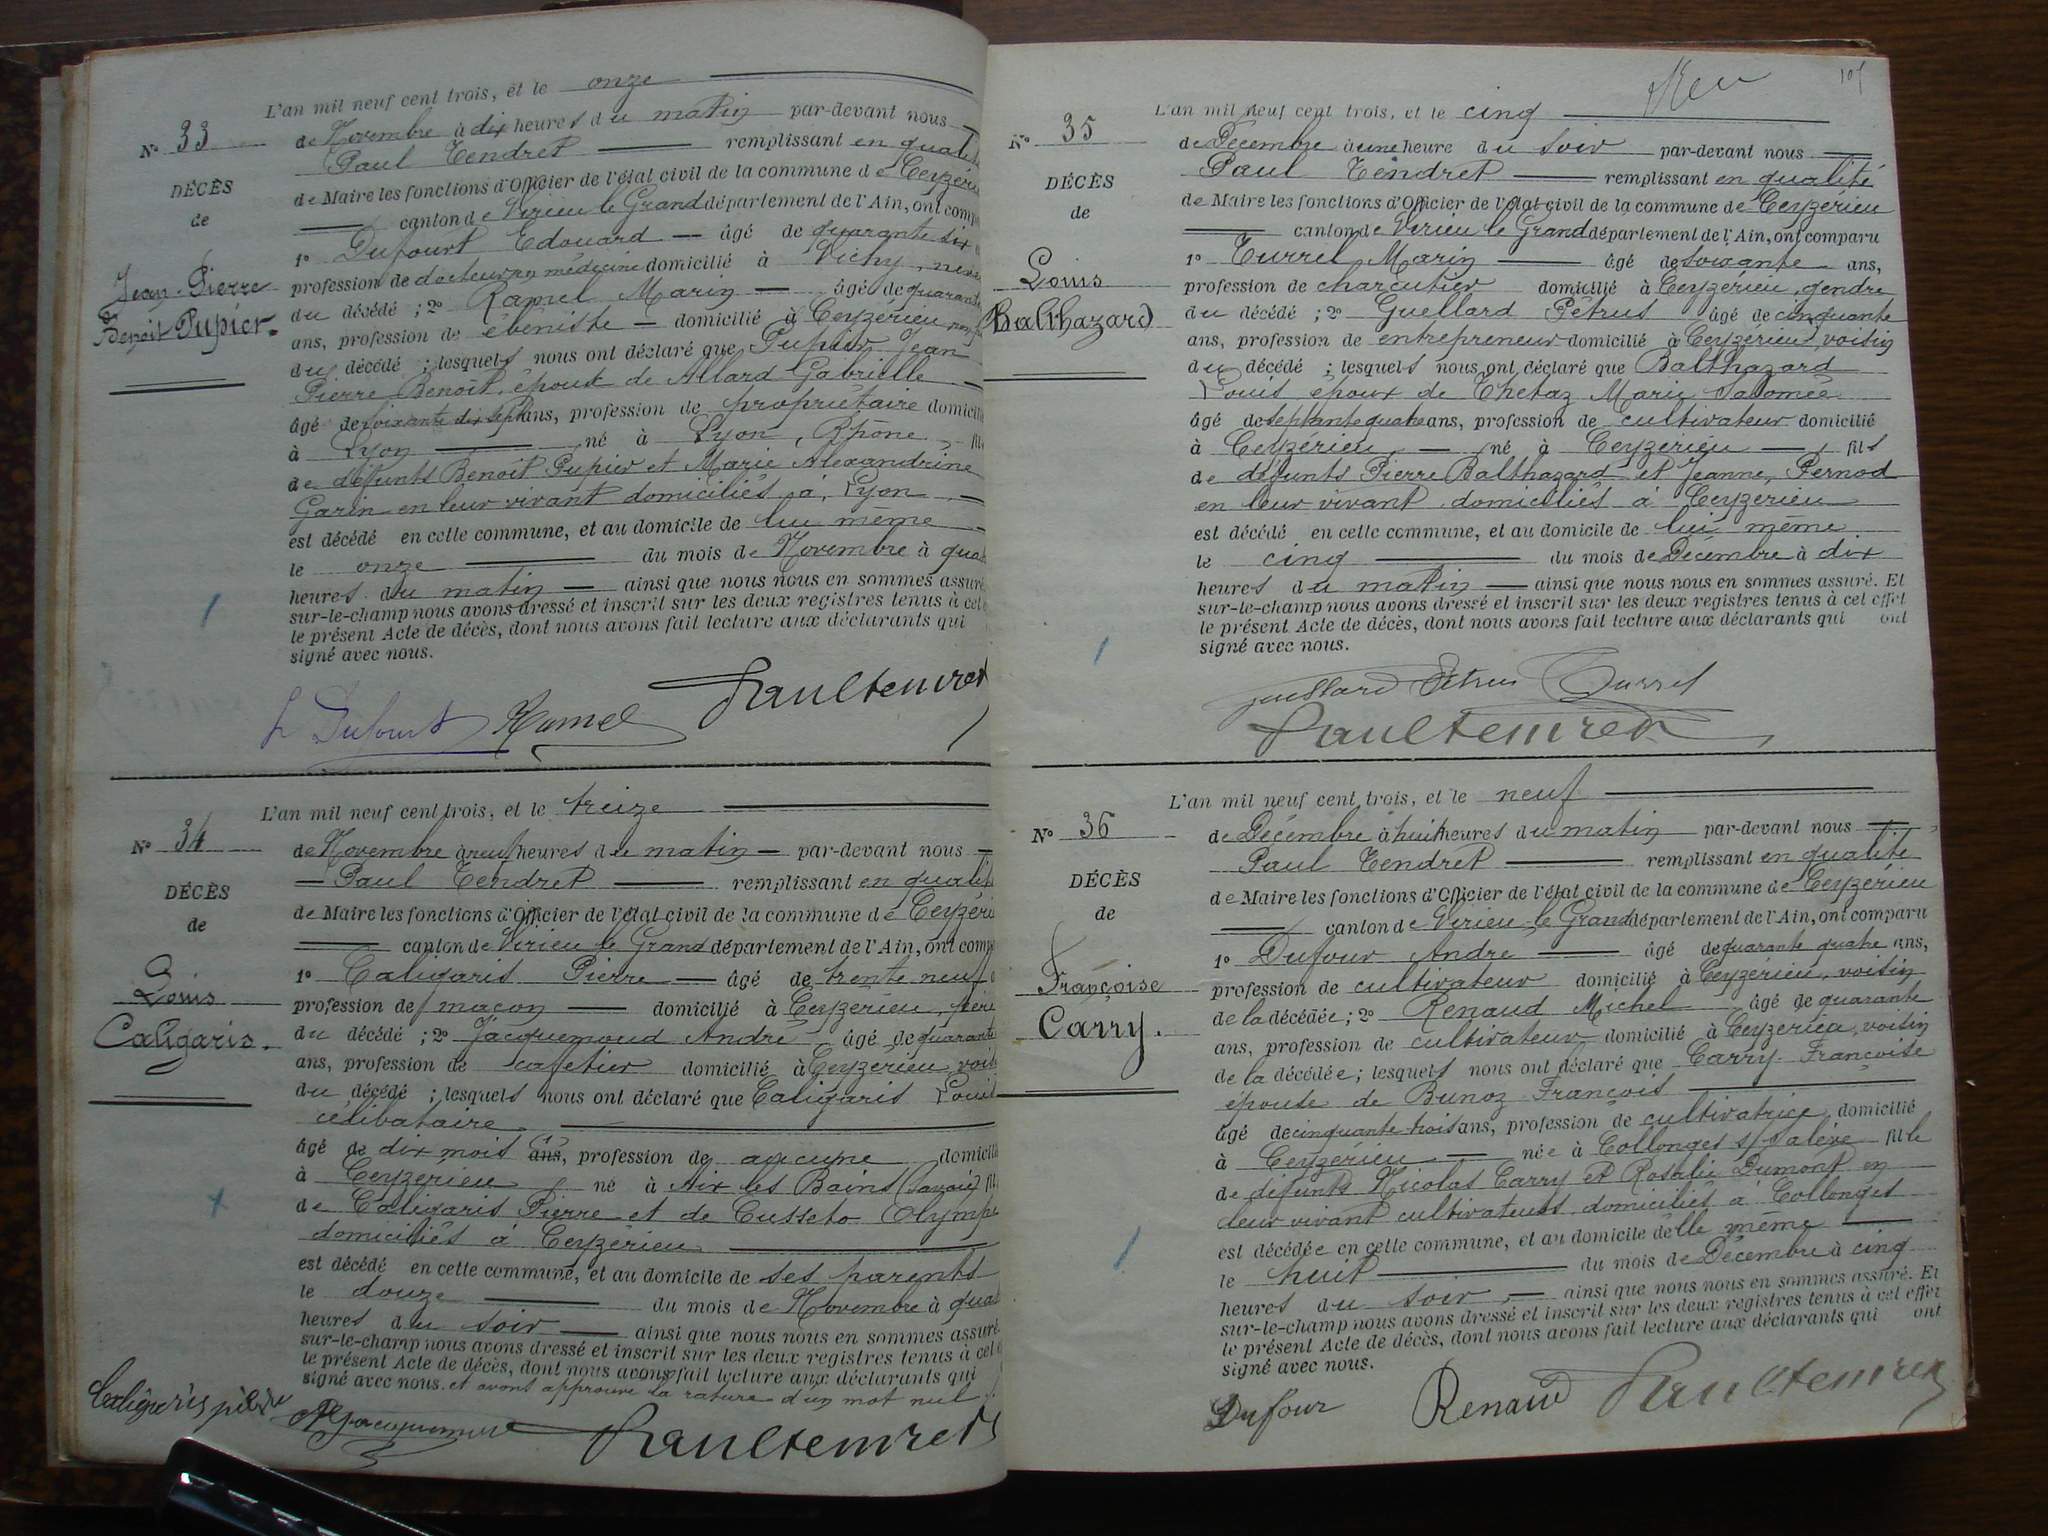 L'an mil neuf cent trois, et le onze
N° 33
de Novembre à dix heures du matin par-devant nous
Paul Tendret remplissant en qualité
DÉCÈS
de Maire les fonctions d'Officier de l'état civil de la commune de Ceyzérieu
de
canton de Virieu le Grand département de l'Ain, ont comp
1° Dufourt Edouard âgé de quarante six
Jean-Pierre
profession de docteur en médecine domicilié à Vichy, neveu
Benoit Pupier.
du décédé ; 2° Ramel Marin âgé de quarante
ans, profession de ébéniste domicilié à Ceyzérieu
du décédé ; lesquels nous ont déclaré que Pupier Jean
Pierre Benoît, époux de Allard Gabrielle
âgé de soixante dix sept ans, profession de propriétaire domicilié
à Lyon né à Lyon, Rhône, fils
de défunts Benoit Pupier et Marie Alexandrine
Garin en leur vivant domiciliés à Lyon
est décédé en cette commune, et au domicile de lui même
le onze du mois de Novembre à qua
heures du matin ainsi que nous nous en sommes assuré.
sur-le-champ nous avons dressé et inscrit sur les deux registres tenus à cet
le présent Acte de décès, dont nous avons fait lecture aux déclarants qui
signé avec nous.
Dufourt Ramel Paul Tendret
L'an mil neuf cent trois, et le treize
N° 34
de Novembre à neuf heures du matin par-devant nous
Paul Tendret remplissant en qualité
DÉCÈS
de Maire les fonctions d'Officier de l'état civil de la commune de Ceyzéri
de
canton de Virieu le Grand département de l'Ain, ont comp
1° Caligaris Pierre âgé de trente neuf
Louis
profession de maçon domicilié à Ceyzérieu, père
Caligaris.
du décédé ; 2° Jacquemoud André âgé de quarante
ans, profession de cafetier domicilié à Ceyzérieu, vois
du décédé ; lesquels nous ont déclaré que Caligaris Louis
célibataire
âgé de dix mois ans, profession de aucune domicilié
à Ceyzérieu né à Aix les Bains (Savoie) fils
de Caligaris Pierre et de Cusseto Olympe
domiciliés à Ceyzérieu
est décédé en cette commune, et au domicile de ses parents
le douze du mois de Novembre à qua
heures du soir ainsi que nous nous en sommes assuré.
sur-le-champ nous avons dressé et inscrit sur les deux registres tenus à cet
le présent Acte de décès, dont nous avons fait lecture aux déclarants qui
signé avec nous. et avons approuvé la rature d'un mot nul
Caligaris pierre Jacquemoud Paul Tendret
105
L'an mil neuf cent trois, et le cinq
N° 35
de Décembre à une heure du soir par-devant nous
Paul Tendret remplissant en qualité
DÉCÈS
de Maire les fonctions d'Officier de l'état civil de la commune de Ceyzérieu
de
canton de Virieu le Grand département de l'Ain, ont comparu
1° Turrel Marin âgé de soixante ans,
Louis
profession de charcutier domicilié à Ceyzérieu, gendre
Balthazard
du décédé ; 2° Guellard Pétrus âgé de cinquante
ans, profession de entrepreneur domicilié à Ceyzérieu, voisin
du décédé ; lesquels nous ont déclaré que Balthazard
Louis époux de Thetaz Marie Salomée
âgé de septante quatre ans, profession de cultivateur domicilié
à Ceyzérieu, né à Ceyzérieu, fils
de défunts Pierre Balthazard et Jeanne Pernod
en leur vivant domiciliés à Ceyzérieu
est décédé en cette commune, et au domicile de lui même
le cinq du mois de Décembre à dix
heures du matin ainsi que nous nous en sommes assuré. Et
sur-le-champ nous avons dressé et inscrit sur les deux registres tenus à cet effet
le présent Acte de décès, dont nous avons fait lecture aux déclarants qui ont
signé avec nous.
Guellard Pétrus Turrel
Paul Tendret
L'an mil neuf cent trois, et le neuf
N° 36
de Décembre à huit heures du matin par-devant nous
Paul Tendret remplissant en qualité
DÉCÈS
de Maire les fonctions d'Officier de l'état civil de la commune de Ceyzérieu
de
canton de Virieu le Grand département de l'Ain, ont comparu
1° Dufour André âgé de quarante quatre ans,
Françoise
profession de cultivateur domicilié à Ceyzérieu, voisin
Carry.
de la décédée ; 2° Renaud Michel âgé de quarante
ans, profession de cultivateur domicilié à Ceyzérieu, voisin
de la décédée ; lesquels nous ont déclaré que Carry Françoise
épouse de Bunoz François
âgé de cinquante trois ans, profession de cultivatrice domicilié
à Ceyzérieu née à Collonges s/ Salève fille
de défunts Nicolas Carry et Rosalie Dumont en
leur vivant cultivateurs domiciliés à Collonges
est décédée en cette commune, et au domicile delle même
le huit du mois de Décembre à cinq
heures du soir, ainsi que nous nous en sommes assuré. Et
sur-le-champ nous avons dressé et inscrit sur les deux registres tenus à cet effet
le présent Acte de décès, dont nous avons fait lecture aux déclarants qui ont
signé avec nous.
Dufour Renaud Paul Tendret